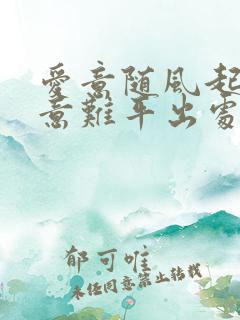 愛意随風起
意難平出處
郁可唯
未经同意禁止转载